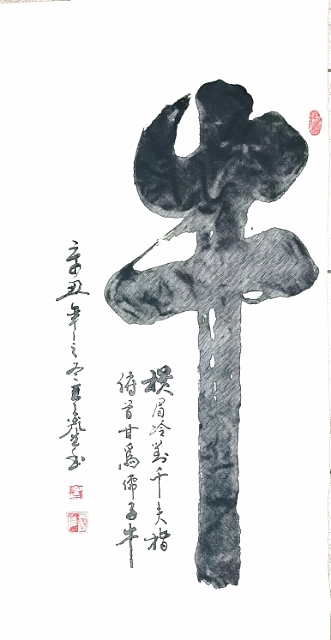 牛
横眉冷对千夫指
俯首甘为孺子牛
辛丑年之冬